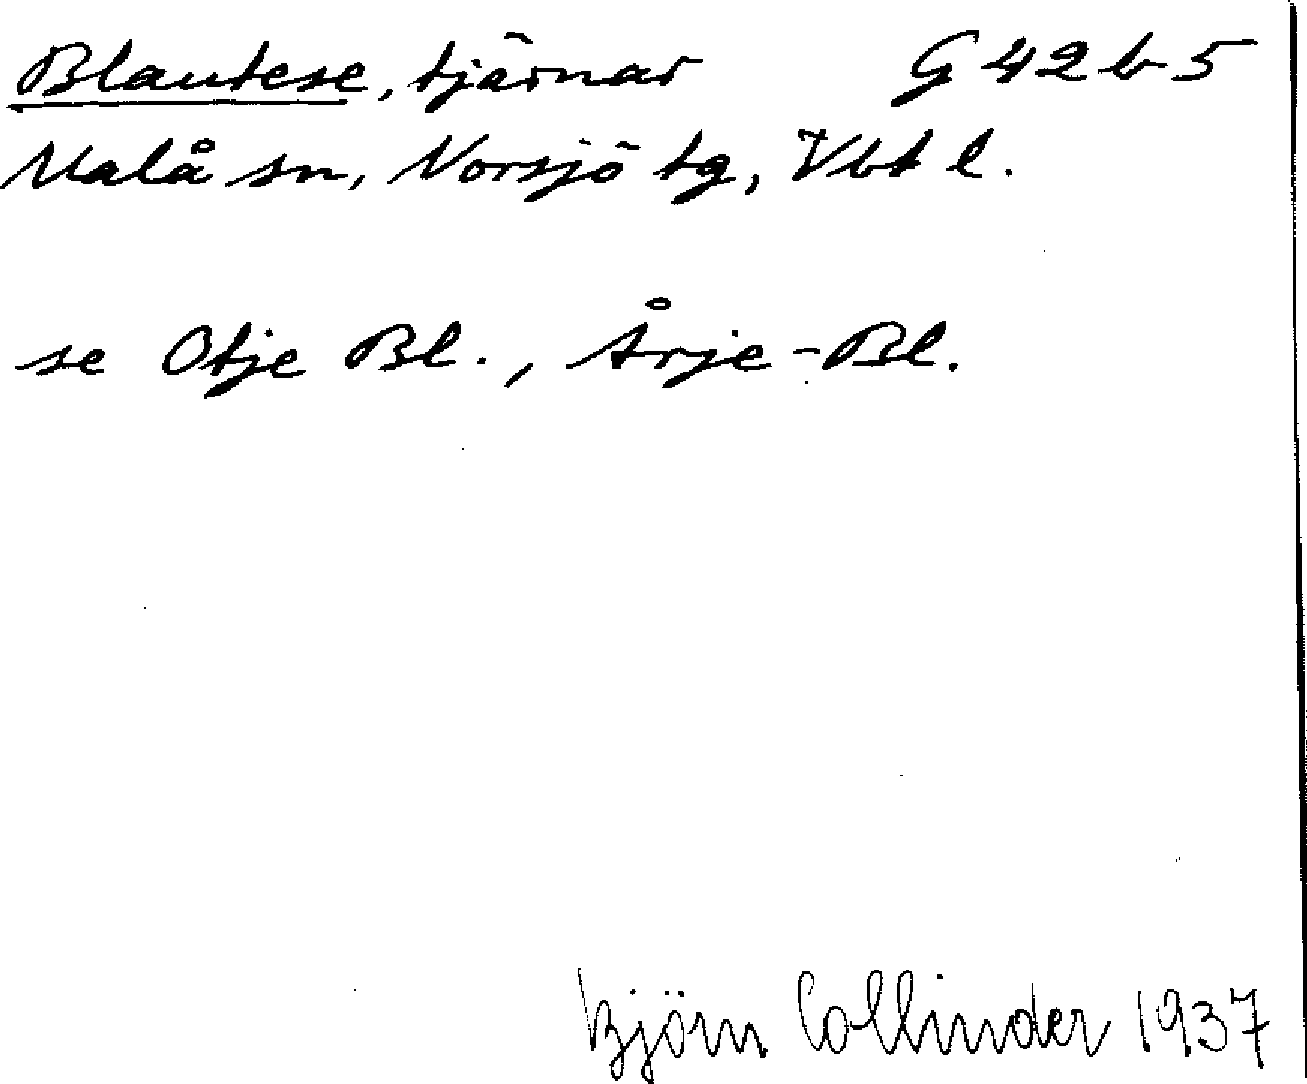 Blautese, tjärnar G 42 b 5
Malå sn, Norsjö tg, Vbt l.
se Otje Bl., Årje-Bl.
Björn Collinder 1937